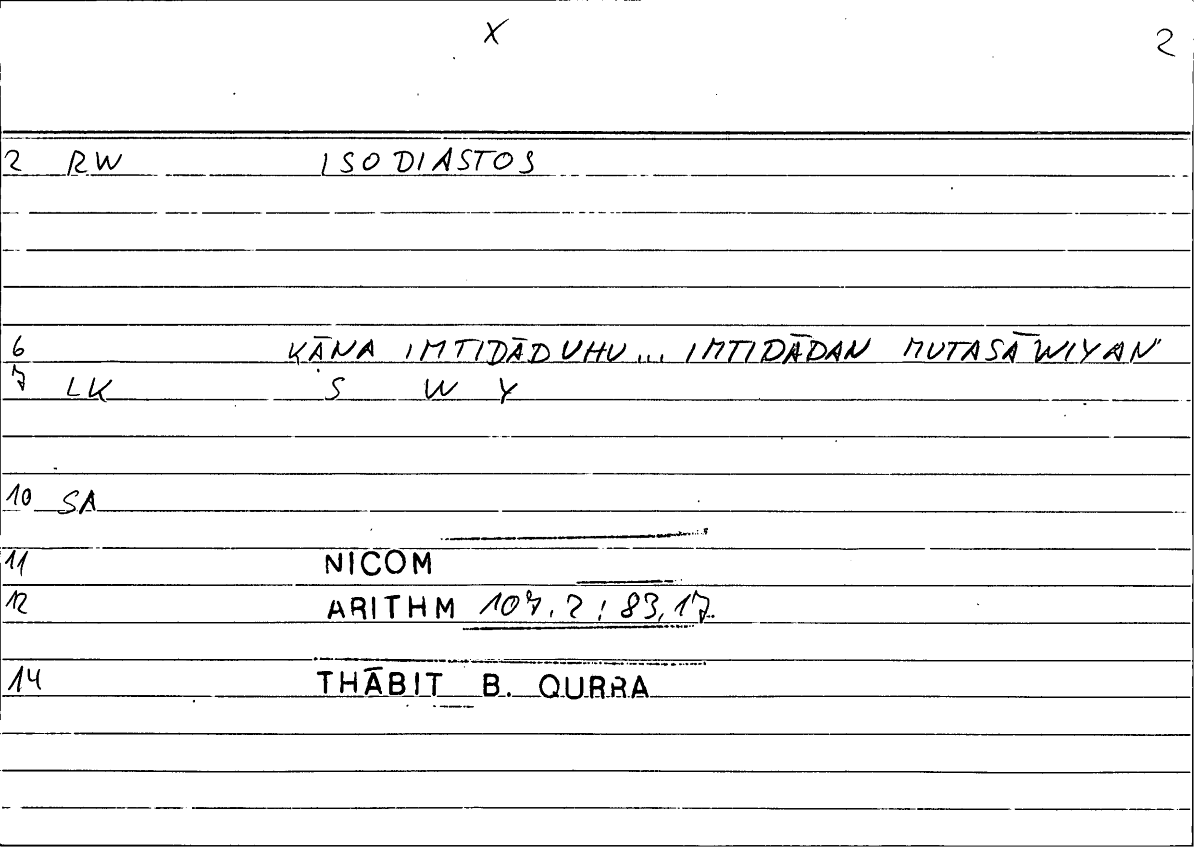 X 2
2 RW ISODIASTOS
6 KĀNA IMTIDĀDUHU... IMTIDĀDAN MUTASĀWIYAN
7 LK S W Y
10 SA
11 NICOM
12 ARITHM 107,2; 83,17.
14 THĀBIT B. QURRA